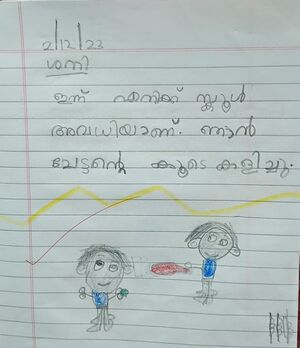 2/12/23
ശനി
ഇന്ന് എനിക്ക് സ്കൂൾ
അവധിയാണ്. ഞാൻ
ചേട്ടന്റെ കൂടെ കളിച്ചു.